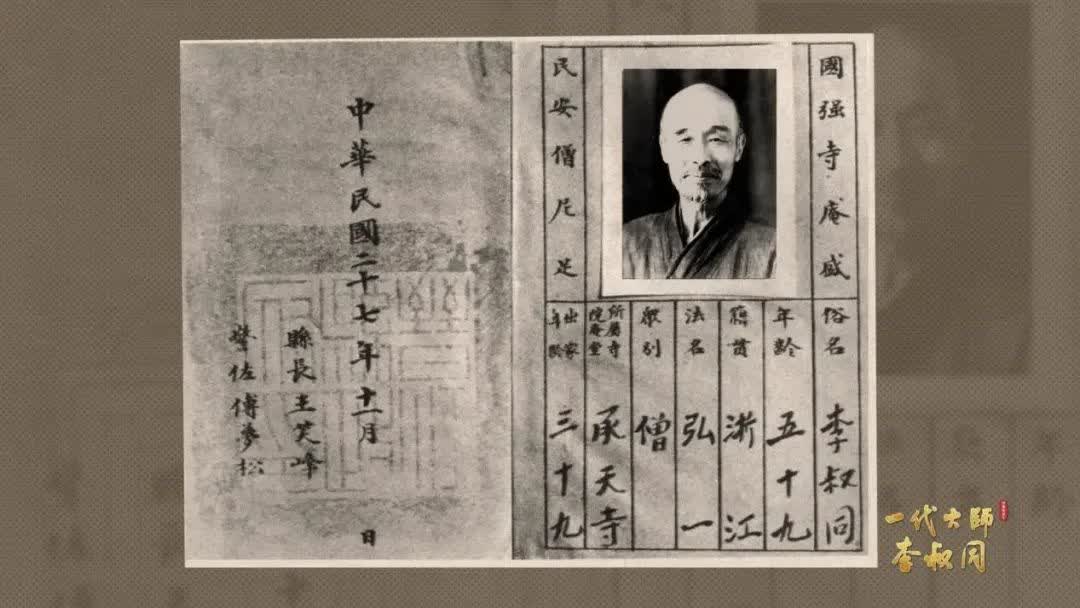 國强寺庵盛
民安僧尼足
俗名 李叔同
年齡 五十九
籍貫 浙江
法名 弘一
眾別 僧
所屬寺院庵堂 承天寺
出家年齡 三十九
中華民國二十七年十一月 日
縣長王笑峰
警佐傅夢松
一代大師
李叔同